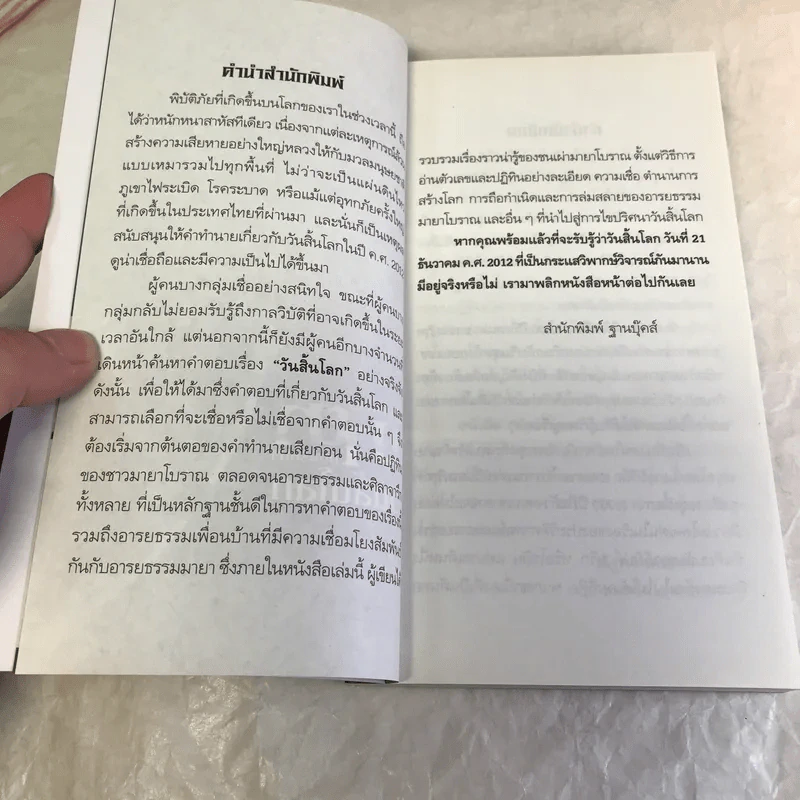 คำนำสำนักพิมพ์
พิบัติภัยที่เกิดขึ้นบนโลกของเราในช่วงเวลานี้
ได้ว่าหนักหนาสาหัสทีเดียว เนื่องจากแต่ละเหตุการณ์
สร้างความเสียหายอย่างใหญ่หลวงให้กับมวลมนุษยชาติ
แบบเหมารวมไปทุกพื้นที่ ไม่ว่าจะเป็นแผ่นดินไหว
ภูเขาไฟระเบิด โรคระบาด หรือแม้แต่อุทกภัยครั้งใหญ่
ที่เกิดขึ้นในประเทศไทยที่ผ่านมา และนั่นก็เป็น
สนับสนุนให้คำทำนายเกี่ยวกับวันสิ้นโลกในปี ค.ศ. 2012
ดูน่าเชื่อถือและมีความเป็นไปได้ขึ้นมา
ผู้คนบางกลุ่มเชื่ออย่างสนิทใจ ขณะที่ผู้คน
กลุ่มกลับไม่ยอมรับรู้ถึงกาลวิบัติที่อาจเกิดขึ้นใน
เวลาอันใกล้ แต่นอกจากนี้ก็ยังมีผู้คนอีกบาง
เดินหน้าค้นหาคำตอบเรื่อง “วันสิ้นโลก” อย่าง
ดังนั้น เพื่อให้ได้มาซึ่งคำตอบที่เกี่ยวกับวันสิ้นโลก
สามารถเลือกที่จะเชื่อหรือไม่เชื่อจากคำตอบนั้น ๆ
ต้องเริ่มจากต้นตอของคำทำนายเสียก่อน นั่นคือปฏิทิน
ของชาวมายาโบราณ ตลอดจนอารยธรรมและศิลาจารึก
ทั้งหลาย ที่เป็นหลักฐานชั้นดีในการหาคำตอบของ
รวมถึงอารยธรรมเพื่อนบ้านที่มีความเชื่อมโยงสัมพันธ์
กันกับอารยธรรมมายา ซึ่งภายในหนังสือเล่มนี้ ผู้เขียนได้
รวบรวมเรื่องราวน่ารู้ของชนเผ่ามายาโบราณ ตั้งแต่วิธีการ
อ่านตัวเลขและปฏิทินอย่างละเอียด ความเชื่อ ตำนานการ
สร้างโลก การถือกำเนิดและการล่มสลายของอารยธรรม
มายาโบราณ และอื่น ๆ ที่นำไปสู่การไขปริศนาวันสิ้นโลก
หากคุณพร้อมแล้วที่จะรับรู้ว่าวันสิ้นโลก วันที่ 21
ธันวาคม ค.ศ. 2012 ที่เป็นกระแสวิพากษ์วิจารณ์กันมานาน
มีอยู่จริงหรือไม่ เรามาพลิกหนังสือหน้าต่อไปกันเลย
สำนักพิมพ์ ฐานบุ๊คส์